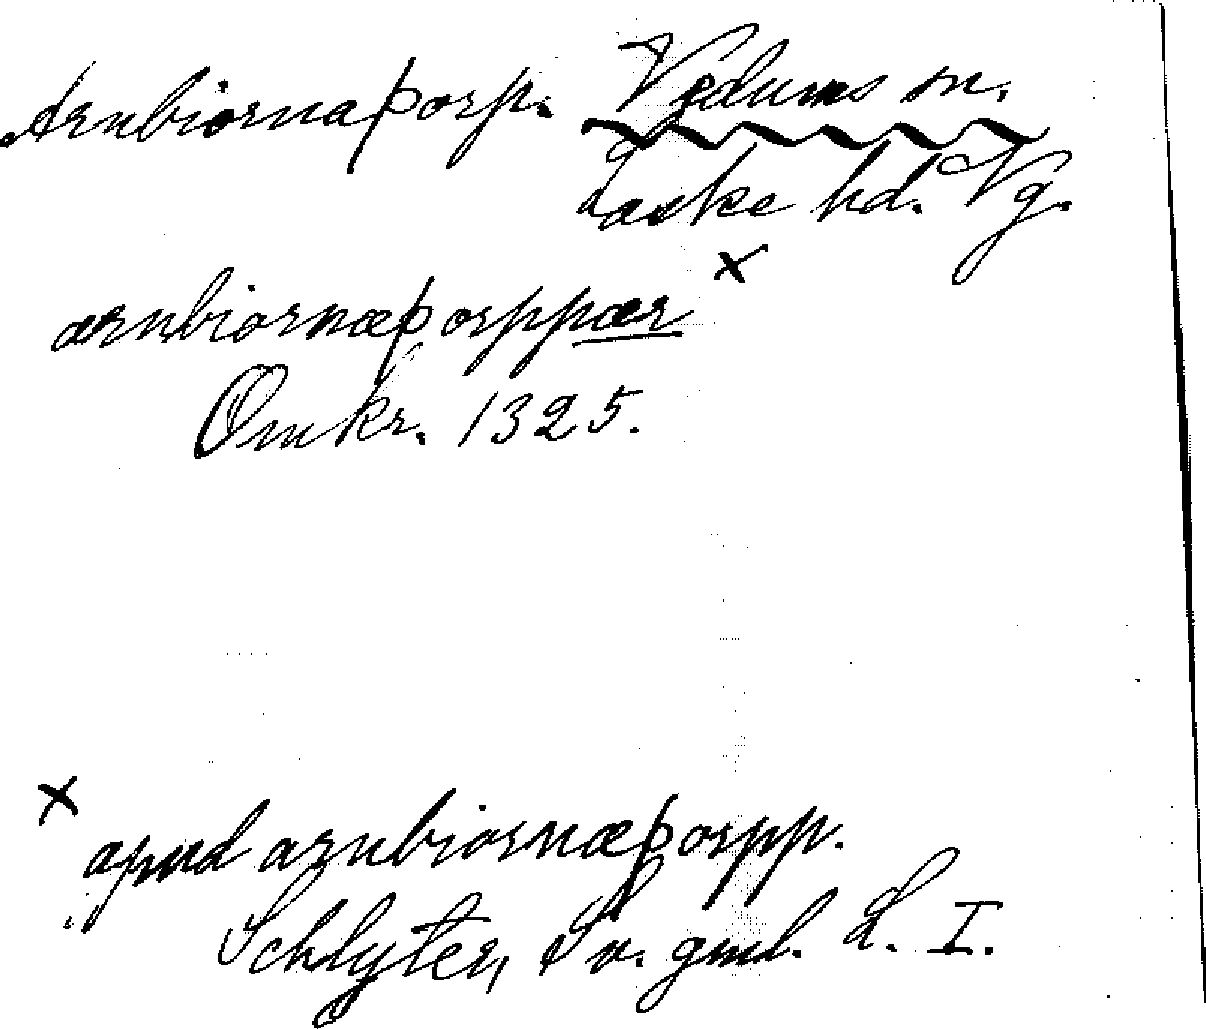 Arnbiornaþorp. Vedums sn.
Laske hd. Vg.
arnbiornæþorppær ×
Omkr. 1325.
×
apud arnbiornæþorpp.
Schlyter, Sv. gml. L. I.